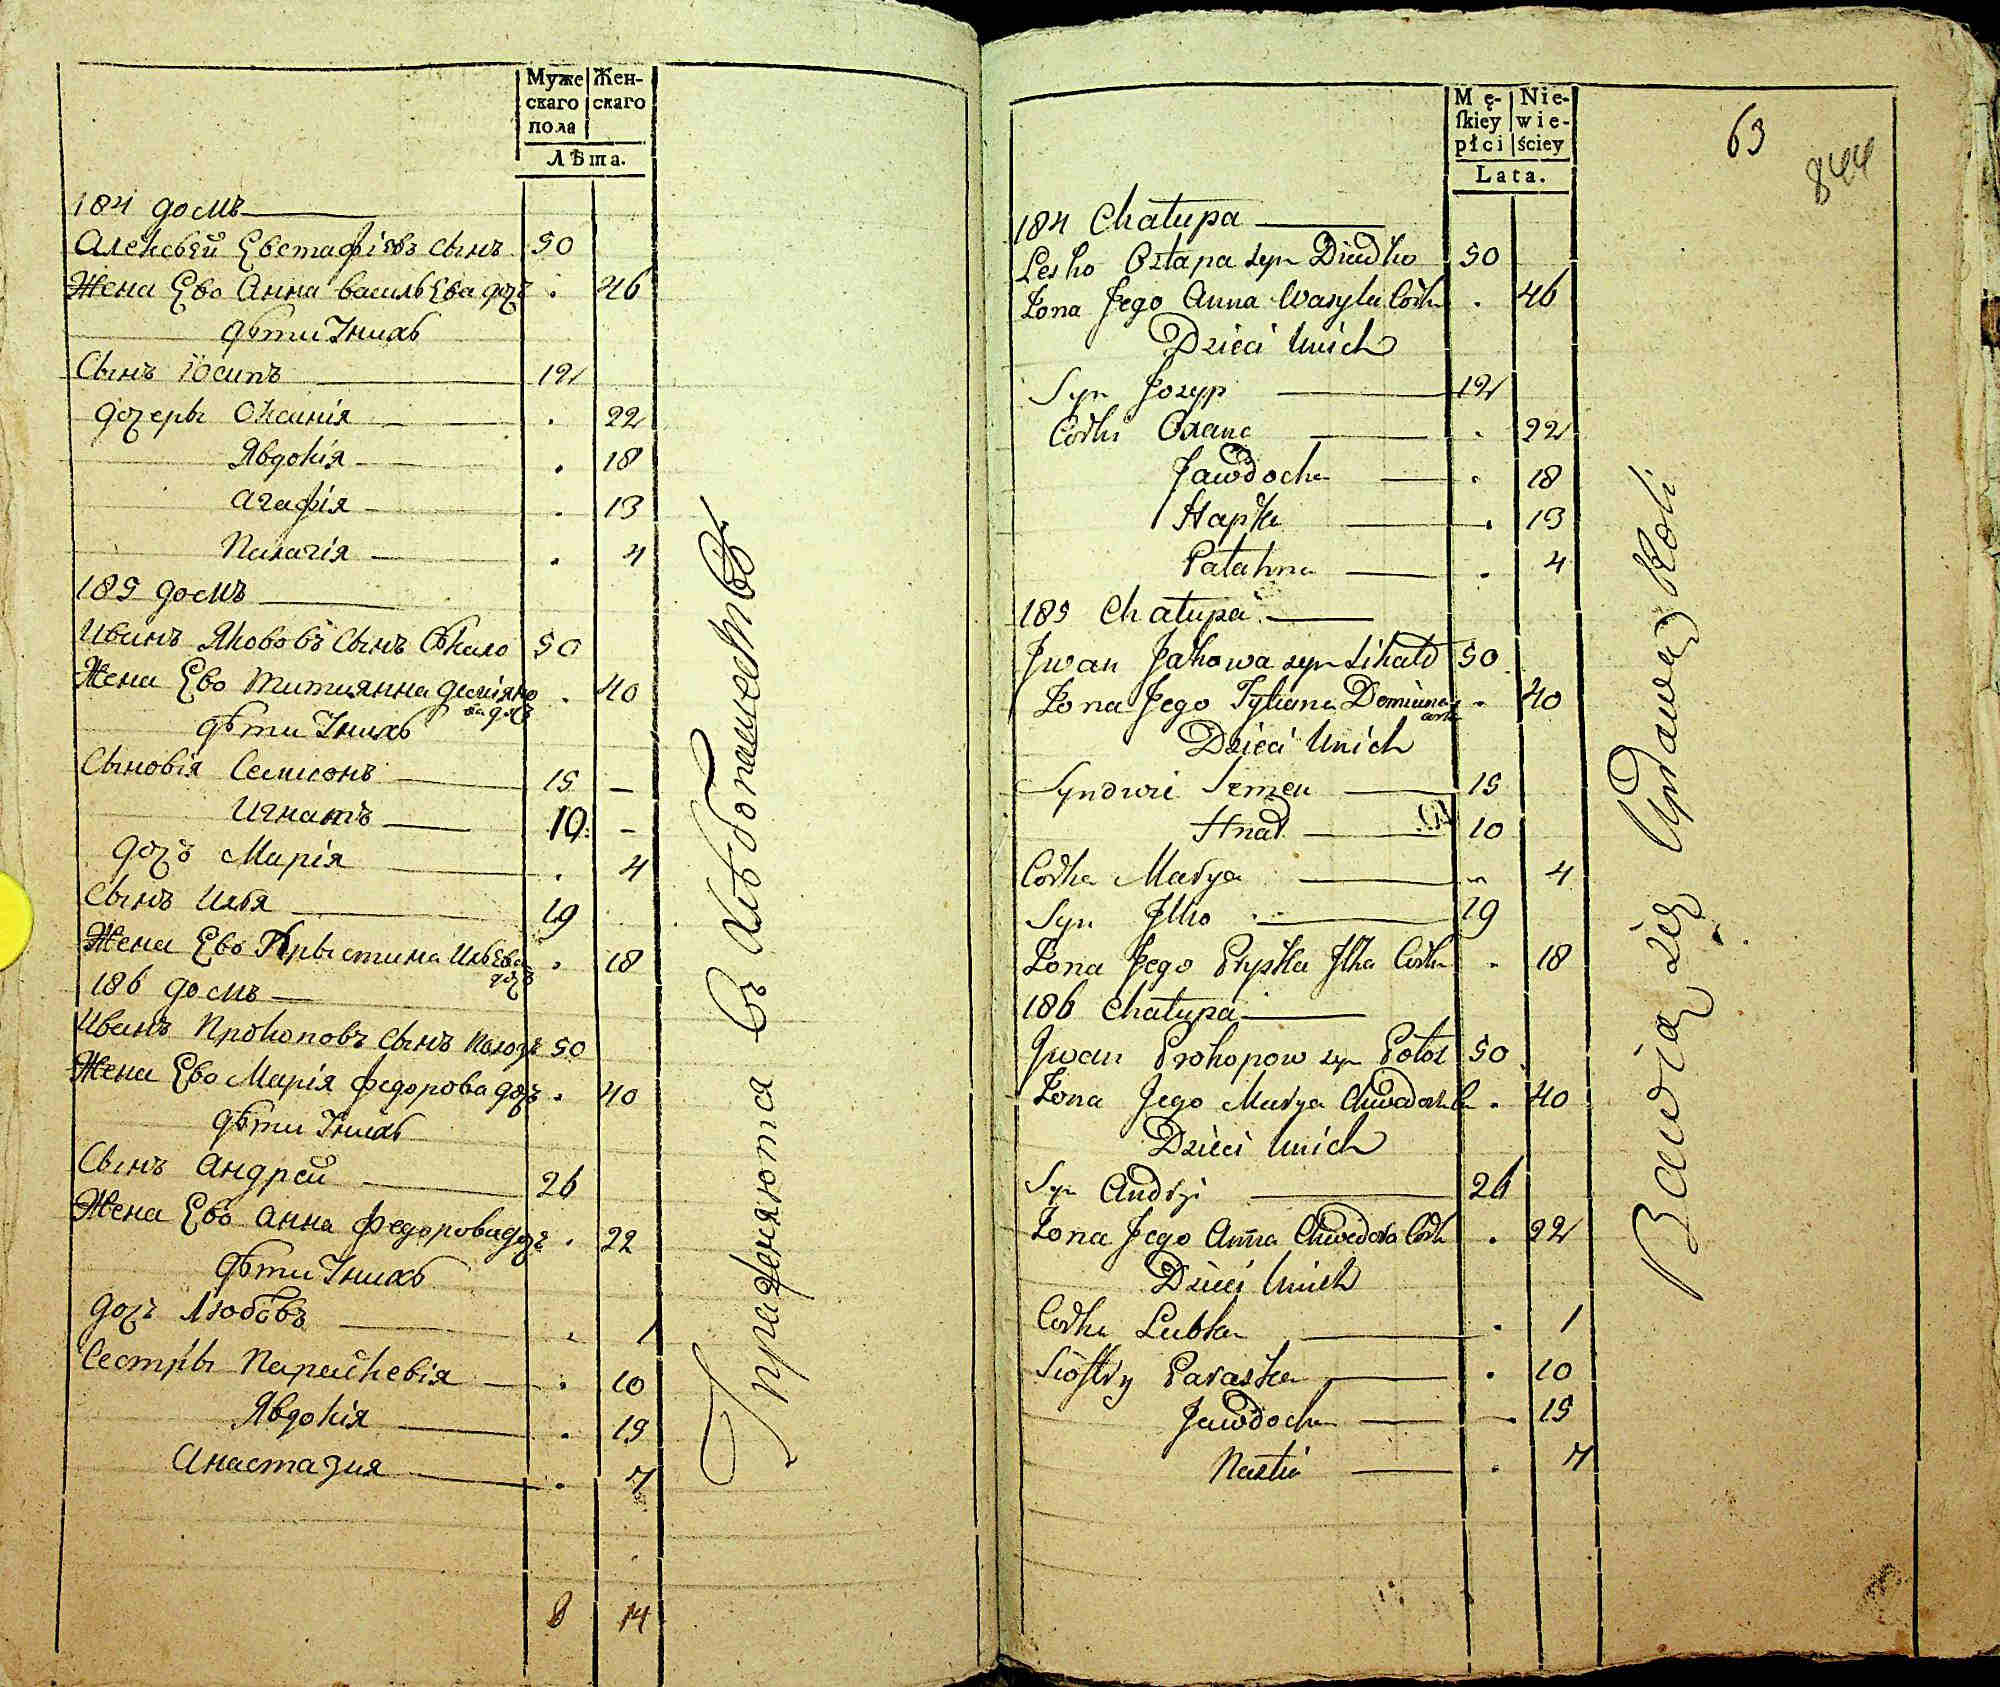 Муже
скаго
пола
Жен-
скаго
Лѣта.
184 домъ
Алексѣй Евстафіевъ сынъ 50
Жена Ево Анна васильева доч . 46
дѣти Ихъ
Сынъ Юсипъ 12
дочеры Оксинія . 22
Явдокія . 18
агафія . 13
Пилагія . 4
185 домъ
Иванъ Якововъ сынъ 50
Жена Ево Титиянна демияно . 40
ва доч
дѣти Ихъ
Сыновія Семионъ 15 –
Игнатъ 10 –
дочъ Марія . 4
Сынъ Илья 19
Жена Ево Ильева . 18
доч
186 домъ
Иванъ Прокоповъ сынъ 50
Жена Ево Марія федорова доч . 40
дѣти Ихъ
Сынъ андрей 26
Жена Ево анна федорова доч . 22
дѣти Ихъ
дочъ Любовъ . 1
Сестры Параскевія . 10
Явдокія . 15
Анастазия . 7
8 14
Упражняются въ хлѣбопашествѣ
Mę-
ſkiey
płci
Nie-
wie-
ściey
Lata.
63
844
184 Chałupa
Lesko Ostapa syn Diadko 50
Żona Jego Anna Wasyla Corka . 46
Dzieci Unich
Syn Jozyp 12
Corki Oxana . 22
Jawdocha . 18
Hapka . 13
Pałahna . 4
185 Chałupa
Jwan Jakowa syn Sikało 50
Żona Jego Tyliana Demiana . 40
corka
Dzieci Unich
Synowie Semen 15
Hnat 10
Corka Marya . 4
Syn Jlko 19
Żona Jego Jlka Corka . 18
186 Chałupa
Jwan Prokopow syn Połoz 50
Żona Jego Marya . 40
Dzieci Unich
Syn Andrzi 26
Żona Jego Anna Chwedora Cork . 22
Dzieci Unich
Corka Lubka . 1
Siostry Paraska . 10
Jawdocha . 15
Nastia . 7
Bawią się Uprawą Roli